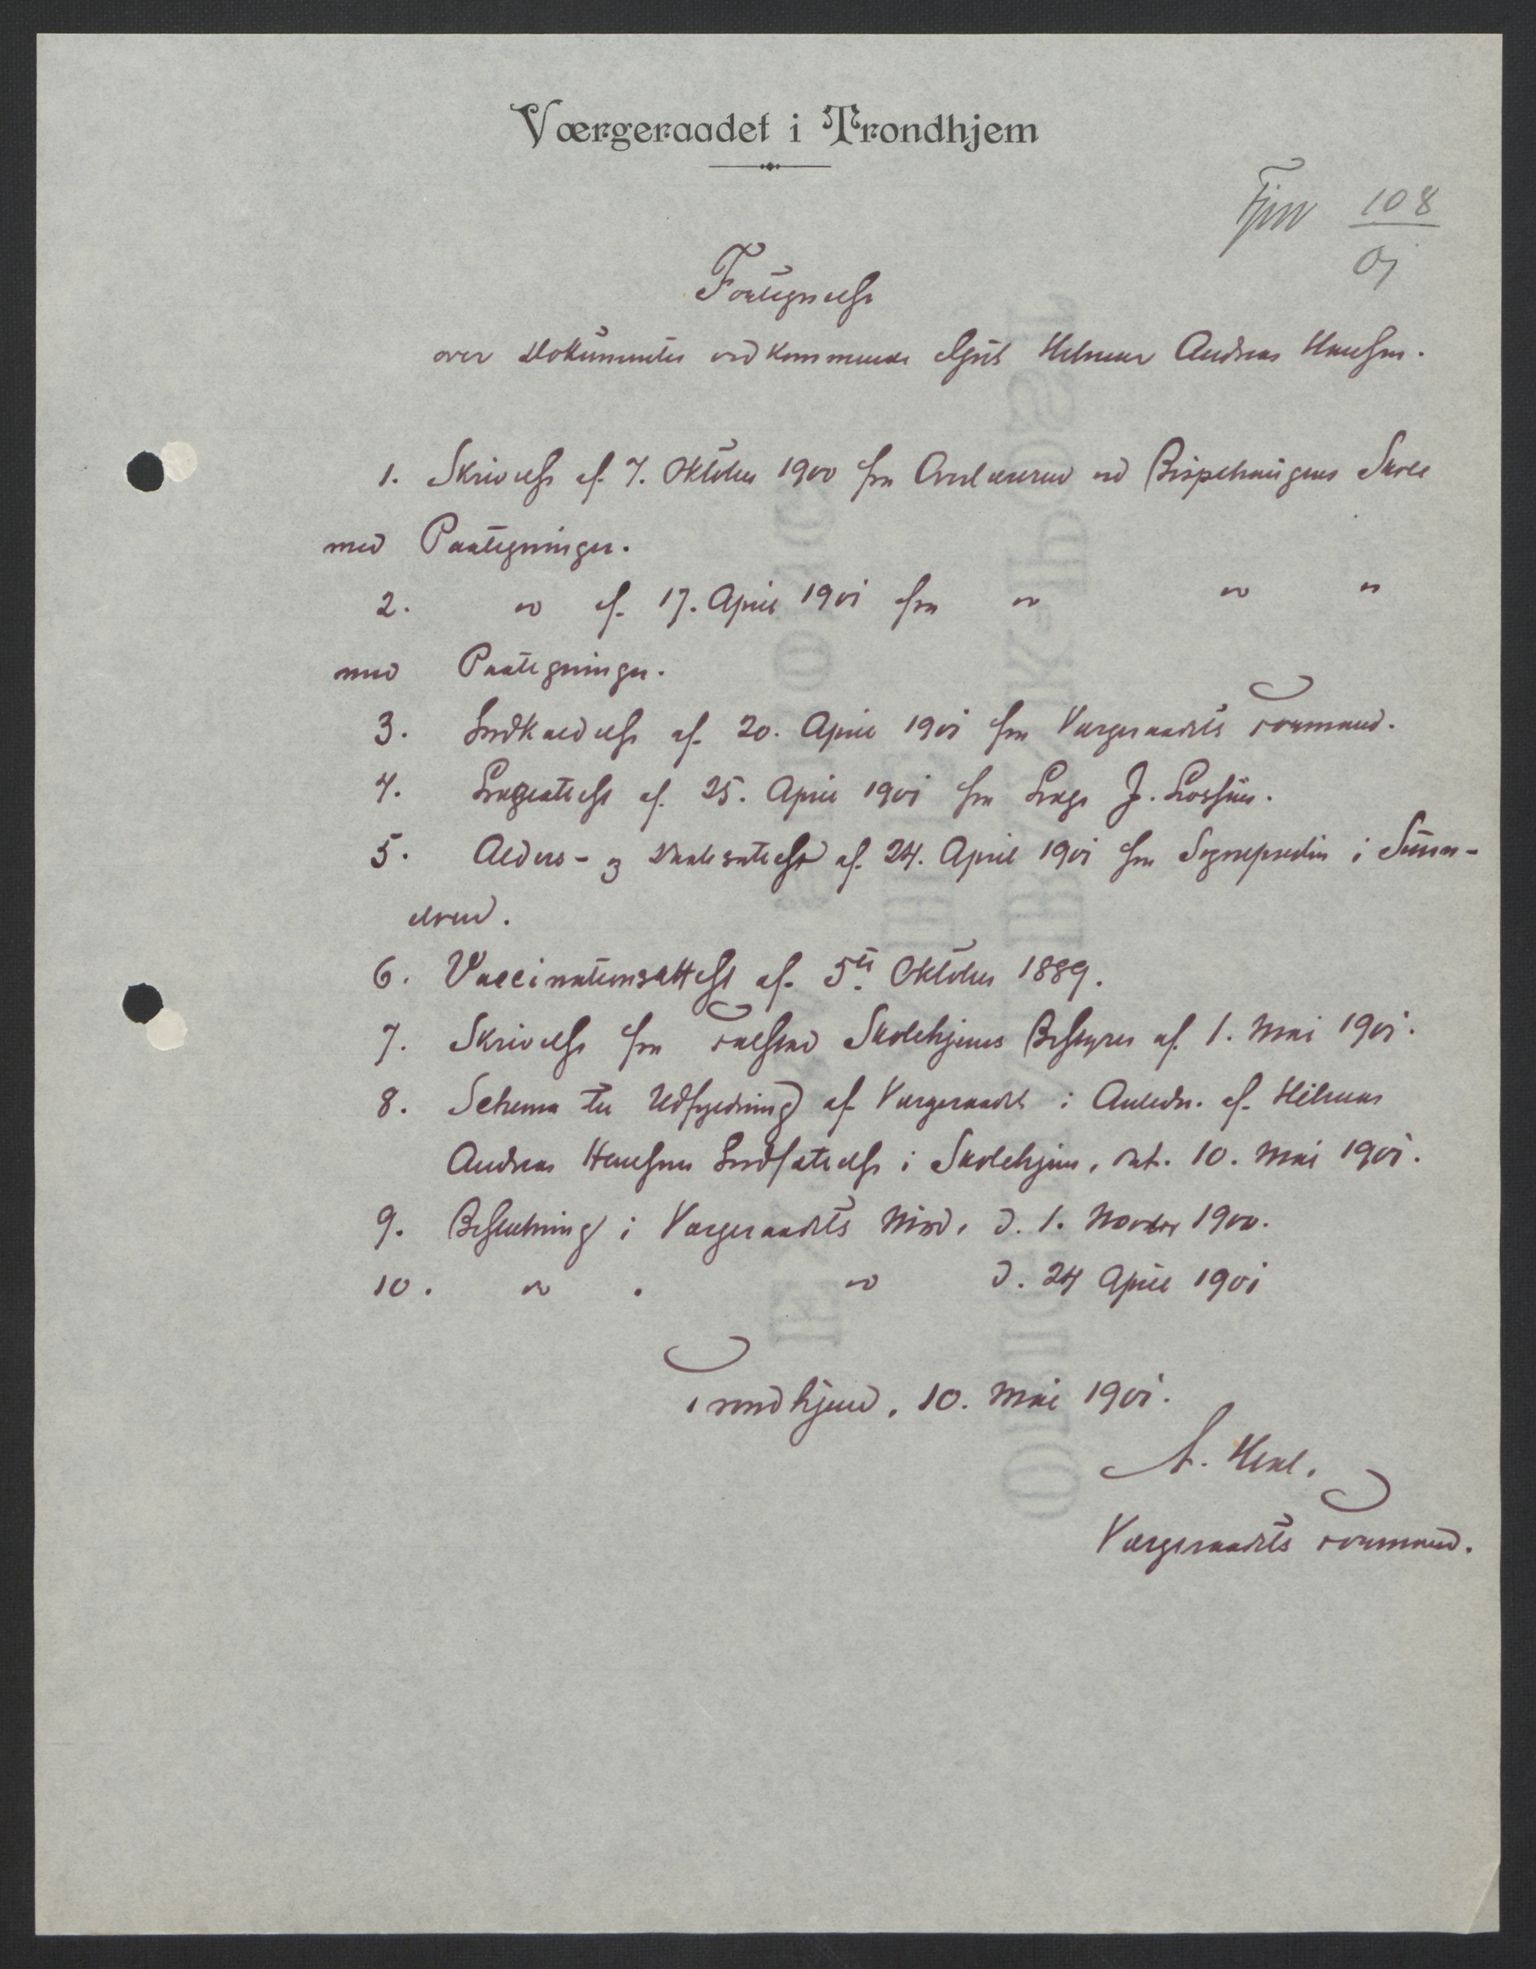 Værgeraadet i Trondhjem
108
01
Fortegnelse
over Dokumenter vedkommende Gut Helmer Andreas Hansen.
1. Skrivelse af 7. Oktober 1900 fra Overlæreren ved Bispehaugens Skole
med Paategninger.
2. " af 17. April 1901 fra " " "
med Paategninger.
3. Indkaldelse af 20. April 1901 fra Værgeraadets Formand.
4. Lægeattest af 25. April 1901 fra Læge J.
5. Alders- og Daabsattest af 24. April 1901 fra Sognepresten i Suren-
dven.
6. Vaccinationsattest af 5te Oktober 1889.
7. Skrivelse fra Falstad Skolehjems Bestyrer af 1. Mai 1901.
8. Schema til Udfyldning af Værgeraadet i Anledn. af Hilmar
Andreas Hansens Indsættelse i Skolehjem, dat. 10. Mai 1901.
9. Beslutning i Værgeraadets Møde, d. 1. Novbr 1900.
10. " . " d. 24 April 1901
Trondhjem, 10. Mai 1901.
Værgeraadets Formand.